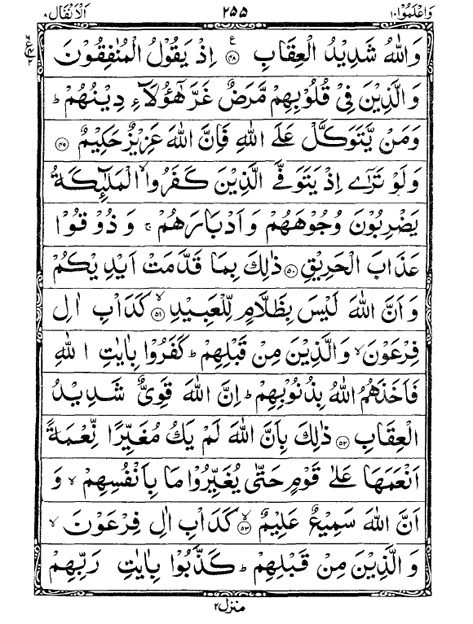 واعلموا ١٠ ٢٥٥ الانفال ٨
وَاللّٰهُ شَدِيْدُ الْعِقَابِ ۝٤٨ اِذْ يَقُوْلُ الْمُنٰفِقُوْنَ
وَالَّذِيْنَ فِيْ قُلُوْبِهِمْ مَّرَضٌ غَرَّ هٰٓؤُلَآءِ دِيْنُهُمْ ؕ
وَمَنْ يَّتَوَكَّلْ عَلَى اللّٰهِ فَاِنَّ اللّٰهَ عَزِيْزٌ حَكِيْمٌ ۝٤٩
وَلَوْ تَرٰٓى اِذْ يَتَوَفَّى الَّذِيْنَ كَفَرُوا ۙ الْمَلٰٓئِكَةُ
يَضْرِبُوْنَ وُجُوْهَهُمْ وَاَدْبَارَهُمْ ۚ وَذُوْقُوْا
عَذَابَ الْحَرِيْقِ ۝٥٠ ذٰلِكَ بِمَا قَدَّمَتْ اَيْدِيْكُمْ
وَاَنَّ اللّٰهَ لَيْسَ بِظَلَّامٍ لِّلْعَبِيْدِ ۙ۝٥١ كَدَاْبِ اٰلِ
فِرْعَوْنَ ۙ وَالَّذِيْنَ مِنْ قَبْلِهِمْ ؕ كَفَرُوْا بِاٰيٰتِ اللّٰهِ
فَاَخَذَهُمُ اللّٰهُ بِذُنُوْبِهِمْ ؕ اِنَّ اللّٰهَ قَوِيٌّ شَدِيْدُ
الْعِقَابِ ۝٥٢ ذٰلِكَ بِاَنَّ اللّٰهَ لَمْ يَكُ مُغَيِّرًا نِّعْمَةً
اَنْعَمَهَا عَلٰى قَوْمٍ حَتّٰى يُغَيِّرُوْا مَا بِاَنْفُسِهِمْ ۙ وَ
اَنَّ اللّٰهَ سَمِيْعٌ عَلِيْمٌ ۙ۝٥٣ كَدَاْبِ اٰلِ فِرْعَوْنَ ۙ
وَالَّذِيْنَ مِنْ قَبْلِهِمْ ؕ كَذَّبُوْا بِاٰيٰتِ رَبِّهِمْ
منزل ٢